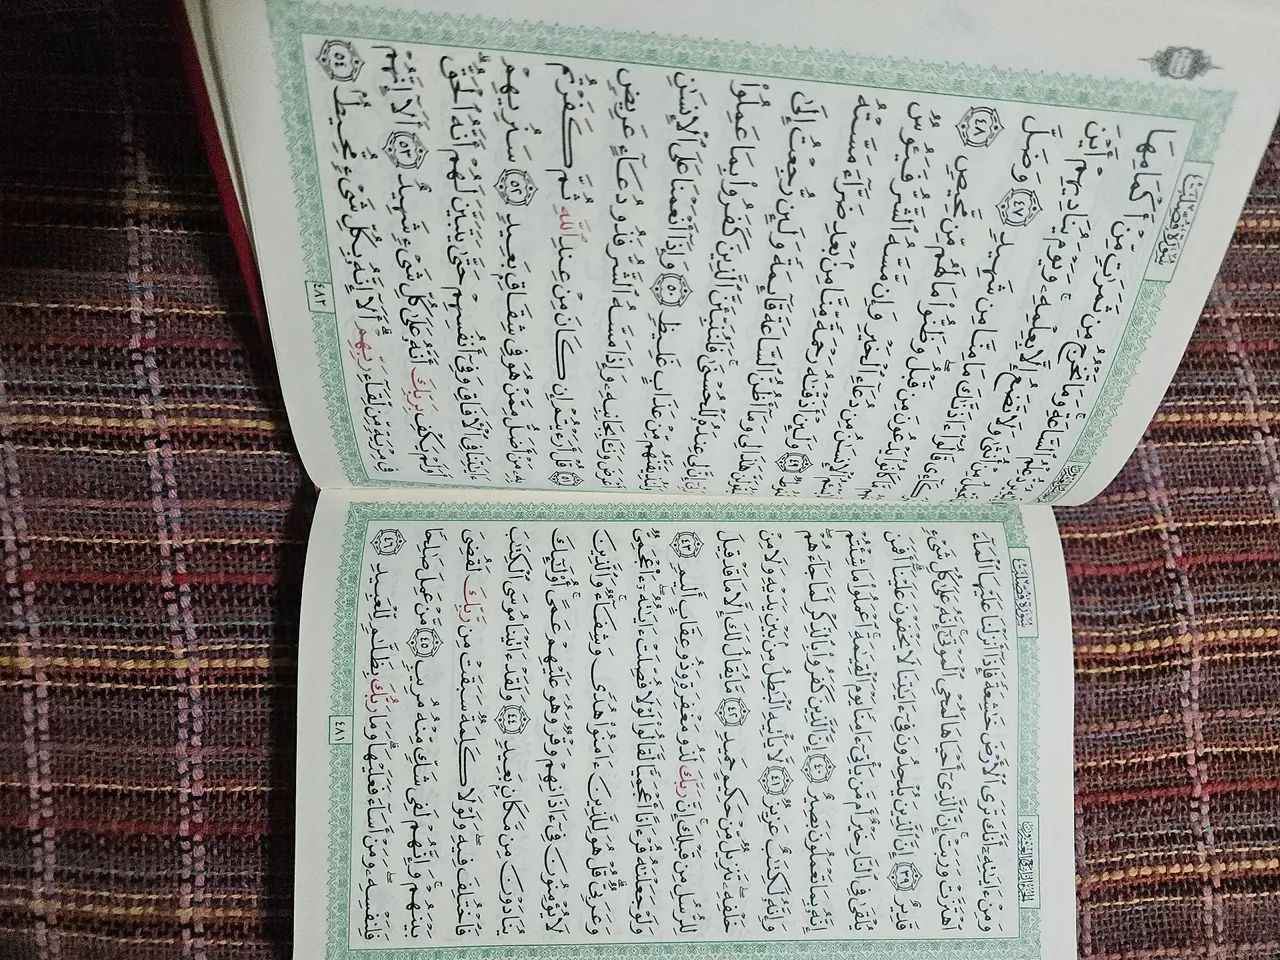 الجزء الرابع والعشرون سُورَةُ فُصِّلَتْ
وَمِنْ ءَايَٰتِهِۦٓ أَنَّكَ تَرَى ٱلْأَرْضَ خَٰشِعَةً فَإِذَآ أَنزَلْنَا عَلَيْهَا ٱلْمَآءَ
ٱهْتَزَّتْ وَرَبَتْ ۚ إِنَّ ٱلَّذِىٓ أَحْيَاهَا لَمُحْىِ ٱلْمَوْتَىٰٓ ۚ إِنَّهُۥ عَلَىٰ كُلِّ شَىْءٍ
قَدِيرٌ ٣٩ إِنَّ ٱلَّذِينَ يُلْحِدُونَ فِىٓ ءَايَٰتِنَا لَا يَخْفَوْنَ عَلَيْنَآ ۗ أَفَمَن
يُلْقَىٰ فِى ٱلنَّارِ خَيْرٌ أَم مَّن يَأْتِىٓ ءَامِنًا يَوْمَ ٱلْقِيَٰمَةِ ۚ ٱعْمَلُوا۟ مَا شِئْتُمْ ۖ
إِنَّهُۥ بِمَا تَعْمَلُونَ بَصِيرٌ ٤٠ إِنَّ ٱلَّذِينَ كَفَرُوا۟ بِٱلذِّكْرِ لَمَّا جَآءَهُمْ ۖ
وَإِنَّهُۥ لَكِتَٰبٌ عَزِيزٌ ٤١ لَّا يَأْتِيهِ ٱلْبَٰطِلُ مِنۢ بَيْنِ يَدَيْهِ وَلَا مِنْ
خَلْفِهِۦ ۖ تَنزِيلٌ مِّنْ حَكِيمٍ حَمِيدٍ ٤٢ مَّا يُقَالُ لَكَ إِلَّا مَا قَدْ قِيلَ
لِلرُّسُلِ مِن قَبْلِكَ ۚ إِنَّ رَبَّكَ لَذُو مَغْفِرَةٍ وَذُو عِقَابٍ أَلِيمٍ ٤٣
وَلَوْ جَعَلْنَٰهُ قُرْءَانًا أَعْجَمِيًّا لَّقَالُوا۟ لَوْلَا فُصِّلَتْ ءَايَٰتُهُۥٓ ۖ ءَا۬عْجَمِىٌّ
وَعَرَبِىٌّ ۗ قُلْ هُوَ لِلَّذِينَ ءَامَنُوا۟ هُدًى وَشِفَآءٌ ۖ وَٱلَّذِينَ
لَا يُؤْمِنُونَ فِىٓ ءَاذَانِهِمْ وَقْرٌ وَهُوَ عَلَيْهِمْ عَمًى ۚ أُو۟لَٰٓئِكَ
يُنَادَوْنَ مِن مَّكَانٍۭ بَعِيدٍ ٤٤ وَلَقَدْ ءَاتَيْنَا مُوسَى ٱلْكِتَٰبَ
فَٱخْتُلِفَ فِيهِ ۗ وَلَوْلَا كَلِمَةٌ سَبَقَتْ مِن رَّبِّكَ لَقُضِىَ
بَيْنَهُمْ ۚ وَإِنَّهُمْ لَفِى شَكٍّ مِّنْهُ مُرِيبٍ ٤٥ مَّنْ عَمِلَ صَٰلِحًا
فَلِنَفْسِهِۦ ۖ وَمَنْ أَسَآءَ فَعَلَيْهَا ۗ وَمَا رَبُّكَ بِظَلَّٰمٍ لِّلْعَبِيدِ ٤٦
٤٨١
سُورَةُ فُصِّلَتْ
ٱلسَّاعَةِ ۚ وَمَا تَخْرُجُ مِن ثَمَرَٰتٍ مِّنْ أَكْمَامِهَا
أُنثَىٰ وَلَا تَضَعُ إِلَّا بِعِلْمِهِۦ ۚ وَيَوْمَ يُنَادِيهِمْ أَيْنَ
شُرَكَآءِى قَالُوٓا۟ ءَاذَنَّٰكَ مَا مِنَّا مِن شَهِيدٍ ٤٧ وَضَلَّ
كَانُوا۟ يَدْعُونَ مِن قَبْلُ ۖ وَظَنُّوا۟ مَا لَهُم مِّن مَّحِيصٍ ٤٨
ٱلْإِنسَٰنُ مِن دُعَآءِ ٱلْخَيْرِ وَإِن مَّسَّهُ ٱلشَّرُّ فَيَـُٔوسٌ
٤٩ وَلَئِنْ أَذَقْنَٰهُ رَحْمَةً مِّنَّا مِنۢ بَعْدِ ضَرَّآءَ مَسَّتْهُ
هَٰذَا لِى وَمَآ أَظُنُّ ٱلسَّاعَةَ قَآئِمَةً وَلَئِن رُّجِعْتُ إِلَىٰ
إِنَّ لِى عِندَهُۥ لَلْحُسْنَىٰ ۚ فَلَنُنَبِّئَنَّ ٱلَّذِينَ كَفَرُوا۟ بِمَا عَمِلُوا۟
وَلَنُذِيقَنَّهُم مِّنْ عَذَابٍ غَلِيظٍ ٥٠ وَإِذَآ أَنْعَمْنَا عَلَى ٱلْإِنسَٰنِ
أَعْرَضَ وَنَـَٔا بِجَانِبِهِۦ وَإِذَا مَسَّهُ ٱلشَّرُّ فَذُو دُعَآءٍ عَرِيضٍ
٥١ قُلْ أَرَءَيْتُمْ إِن كَانَ مِنْ عِندِ ٱللَّهِ ثُمَّ كَفَرْتُم
بِهِۦ مَنْ أَضَلُّ مِمَّنْ هُوَ فِى شِقَاقٍۭ بَعِيدٍ ٥٢ سَنُرِيهِمْ
ءَايَٰتِنَا فِى ٱلْءَافَاقِ وَفِىٓ أَنفُسِهِمْ حَتَّىٰ يَتَبَيَّنَ لَهُمْ أَنَّهُ ٱلْحَقُّ ۗ
أَوَلَمْ يَكْفِ بِرَبِّكَ أَنَّهُۥ عَلَىٰ كُلِّ شَىْءٍ شَهِيدٌ ٥٣ أَلَآ إِنَّهُمْ
فِى مِرْيَةٍ مِّن لِّقَآءِ رَبِّهِمْ ۗ أَلَآ إِنَّهُۥ بِكُلِّ شَىْءٍ مُّحِيطٌۢ ٥٤
٤٨٢